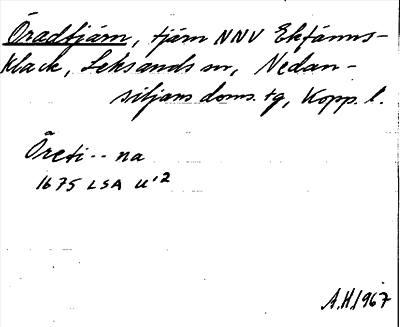 Öradtjärn, tjärn NNV Ekfänns-
klack, Leksands sn, Nedan-
siljans doms. tg, Kopp. l.
Öreti-- na
1675 LSA u'2
A.H. 1967